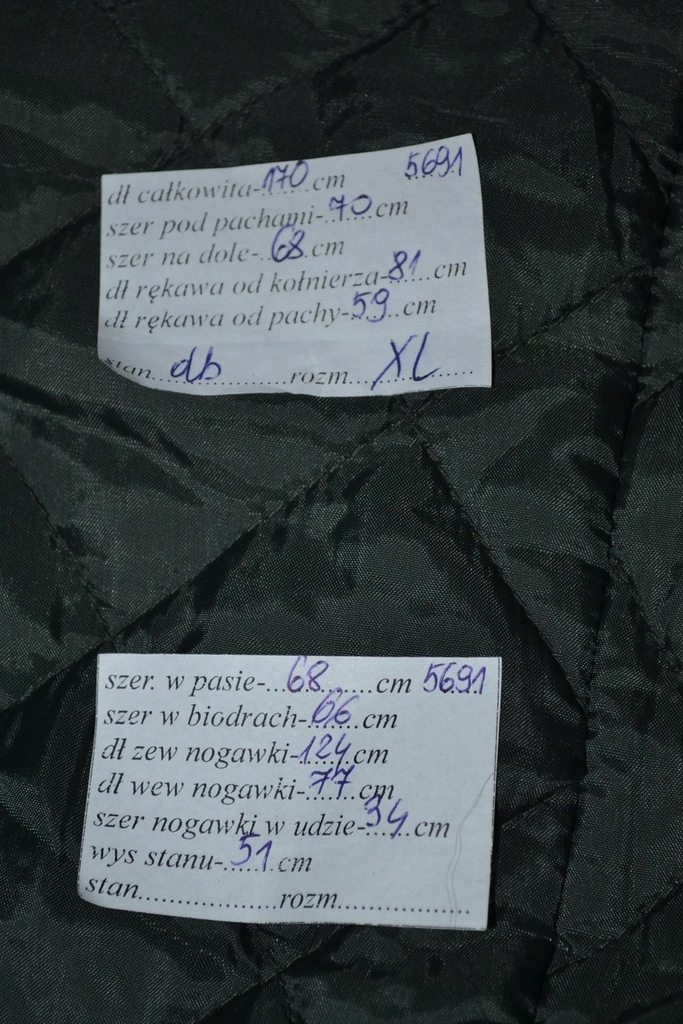 dł całkowita-170 cm 5691
szer pod pachami-70 cm
szer na dole-68 cm
dł rękawa od kołnierza-81 cm
dł rękawa od pachy-59 cm
stan...db...rozm...XL...
szer. w pasie-...68...cm 5691
szer w biodrach-66 cm
dł zew nogawki-124 cm
dł wew nogawki-77 cm
szer nogawki w udzie-34 cm
wys stanu-51 cm
stan...............rozm...............